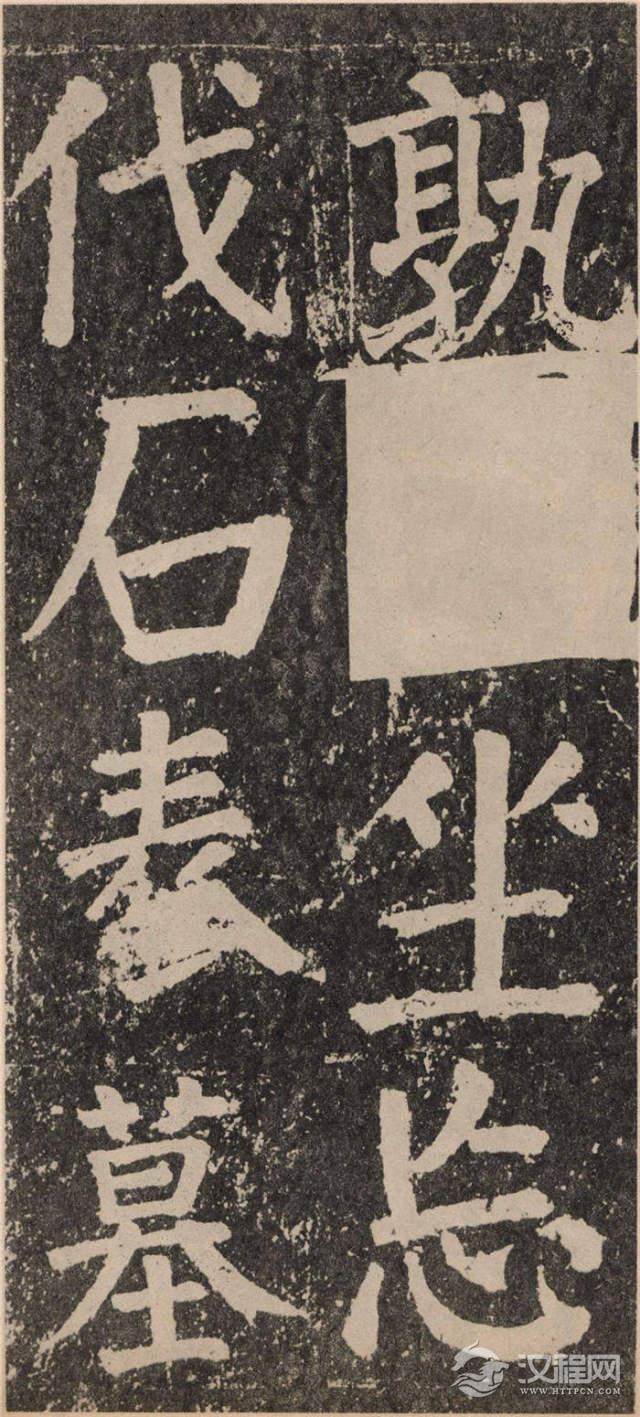 孰坐忘
伐石表墓
汉程网
WWW.HTTPCN.COM